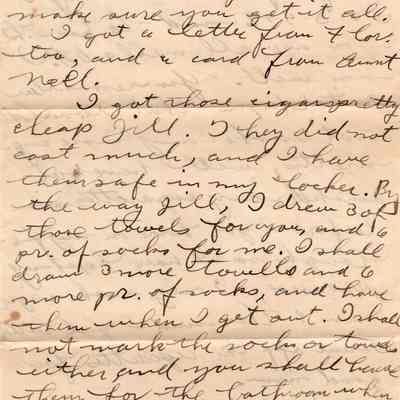 make sure you get it all.
I got a letter from Flor.
too, and a card from Aunt
Nell.
I got those cigars pretty
cheap Jill. They did not
cost much, and I have
them safe in my locker. By
the way Jill, I drew 3 of
those towels for you, and 6
pr. of socks for me. I shall
draw 3 more towells and 6
more pr. of socks, and have
them when I get out. I shall
not mark the socks or towels
either and you shall have
them for the bathroom when